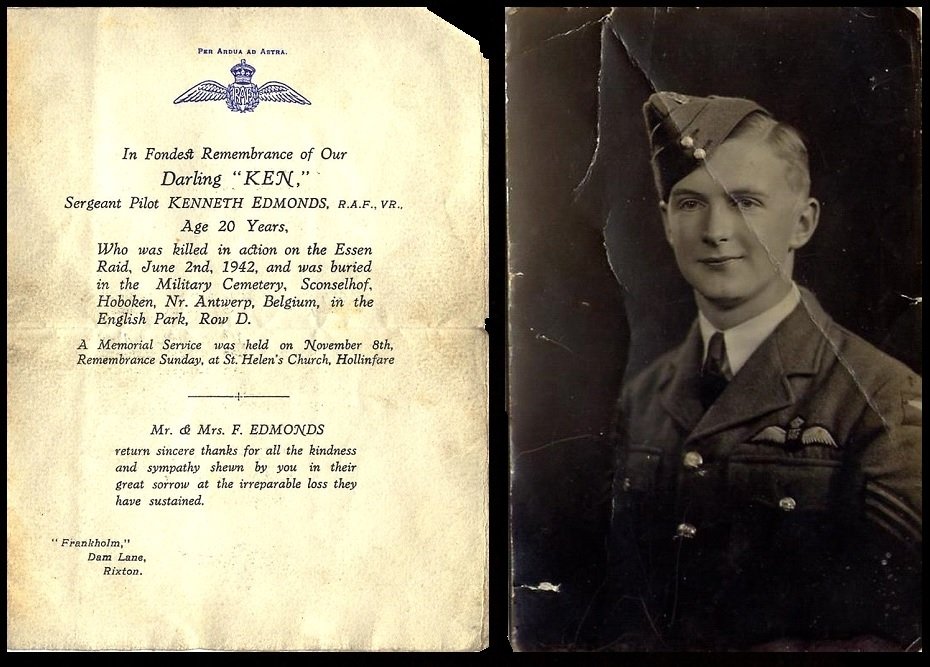 PER ARDUA AD ASTRA.
RAF
In Fondest Remembrance of Our
Darling "KEN,"
Sergeant Pilot KENNETH EDMONDS, R.A.F., VR.,
Age 20 Years,
Who was killed in action on the Essen
Raid, June 2nd, 1942, and was buried
in the Military Cemetery, Sconselhof,
Hoboken, Nr. Antwerp, Belgium, in the
English Park, Row D.
A Memorial Service was held on November 8th,
Remembrance Sunday, at St. Helen's Church, Hollinfare
Mr. & Mrs. F. EDMONDS
return sincere thanks for all the kindness
and sympathy shewn by you in their
great sorrow at the irreparable loss they
have sustained.
"Frankholm,"
Dam Lane,
Rixton.